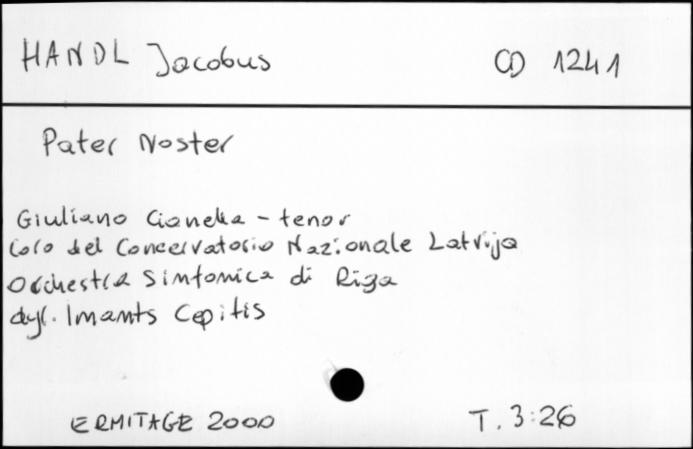 HANDL Jacobus CD 1241
Pater Noster
Giuliano Cianella - tenor
Coro del Concervatorio Nazionale Latvija
Orchestra Sinfonica di Riga
dyr. Imants Cepitis
ERMITAGE 2000 T. 3:26